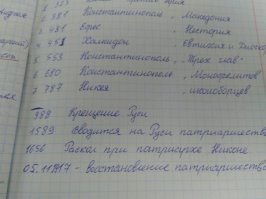 2 381 Константинополь, Македония
3 431 Ефес, Нестория
4 451 Халкидон Евтихия и
5 553 Константинополь, "Трех глав"
6 680 Константинополь, Монофелитов
7 787 Никея, иконоборцев
988 Крещение Руси
1589 Вводится на Руси патриаршество
1656 Раскол при патриархе Никоне
05.11.1917 - восстановление патриаршества